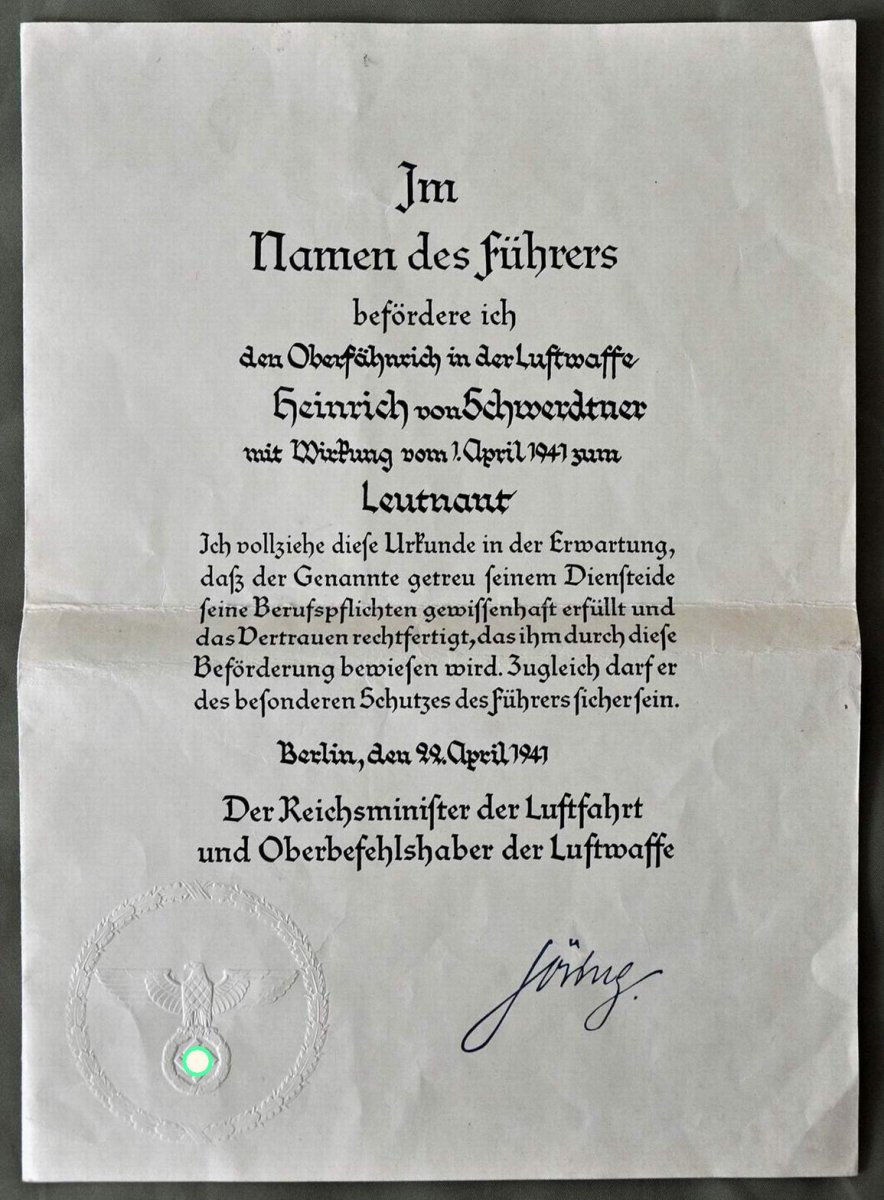 Im
Namen des Führers
befördere ich
den Oberfähnrich in der Luftwaffe
Heinrich von Schwerdtner
mit Wirkung vom 1. April 1941 zum
Leutnant
Ich vollziehe dieſe Urkunde in der Erwartung,
daß der Genannte getreu ſeinem Dienſteide
ſeine Berufspflichten gewiſſenhaft erfüllt und
das Vertrauen rechtfertigt, das ihm durch dieſe
Beförderung bewieſen wird. Zugleich darf er
des beſonderen Schutzes des Führers ſicher ſein.
Berlin, den 22. April 1941
Der Reichsminiſter der Luftfahrt
und Oberbefehlshaber der Luftwaffe
Göring.